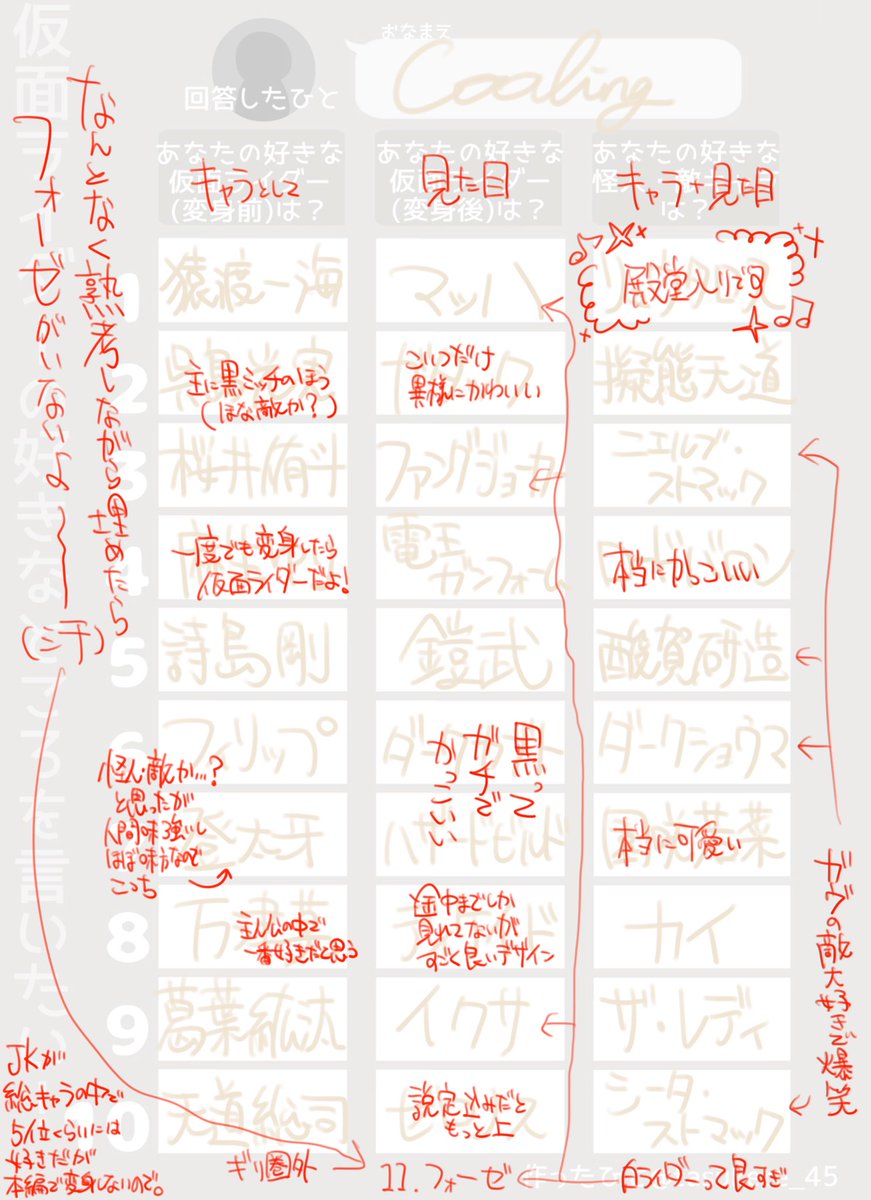 おなまえ
回答したひと
Coaling
あなたの好きな
仮面ライダー
(変身前)は？
あなたの好きな
仮面ライダー
(変身後)は？
あなたの好きな
キャラとして
見た目
キャラ+見た目
なんとなく熟考しながら埋めたら
フォーゼがいないよ〜
(ミ汗)
1
猿渡一海
マッハ
殿堂入りです
2
主に黒ミッチのほう
(ほな敵か？)
こいつだけ
異様にかわいい
擬態天道
3
桜井侑斗
ファングジョーカー
ニエルブ・
ストマック
4
一度でも変身したら
仮面ライダーだよ!
電王
ガンフォーム
本当にかっこいい
5
詩島剛
鎧武
酸賀研造
6
フィリップ
黒って
ガチで
かっこいい
ダークショウマ
怪人・敵か…？
と思ったが
人間味強いし
ほぼ味方なので
こっち
登太牙
ハザードビルド
本当に可愛い
8
主人公の中で
一番好きだと思う
途中までしか
見れてないが
すごく良いデザイン
カイ
9
葛葉紘汰
イクサ
ザ・レディ
10
天道総司
設定込みだと
もっと上
シータ・
ストマック
ガヴの敵大好きで爆笑
JKが
総キャラの中で
5位くらいには
好きだが
本編で変身しないので。
ギリ圏外
11.フォーゼ
白ライダーって良すぎ
_45